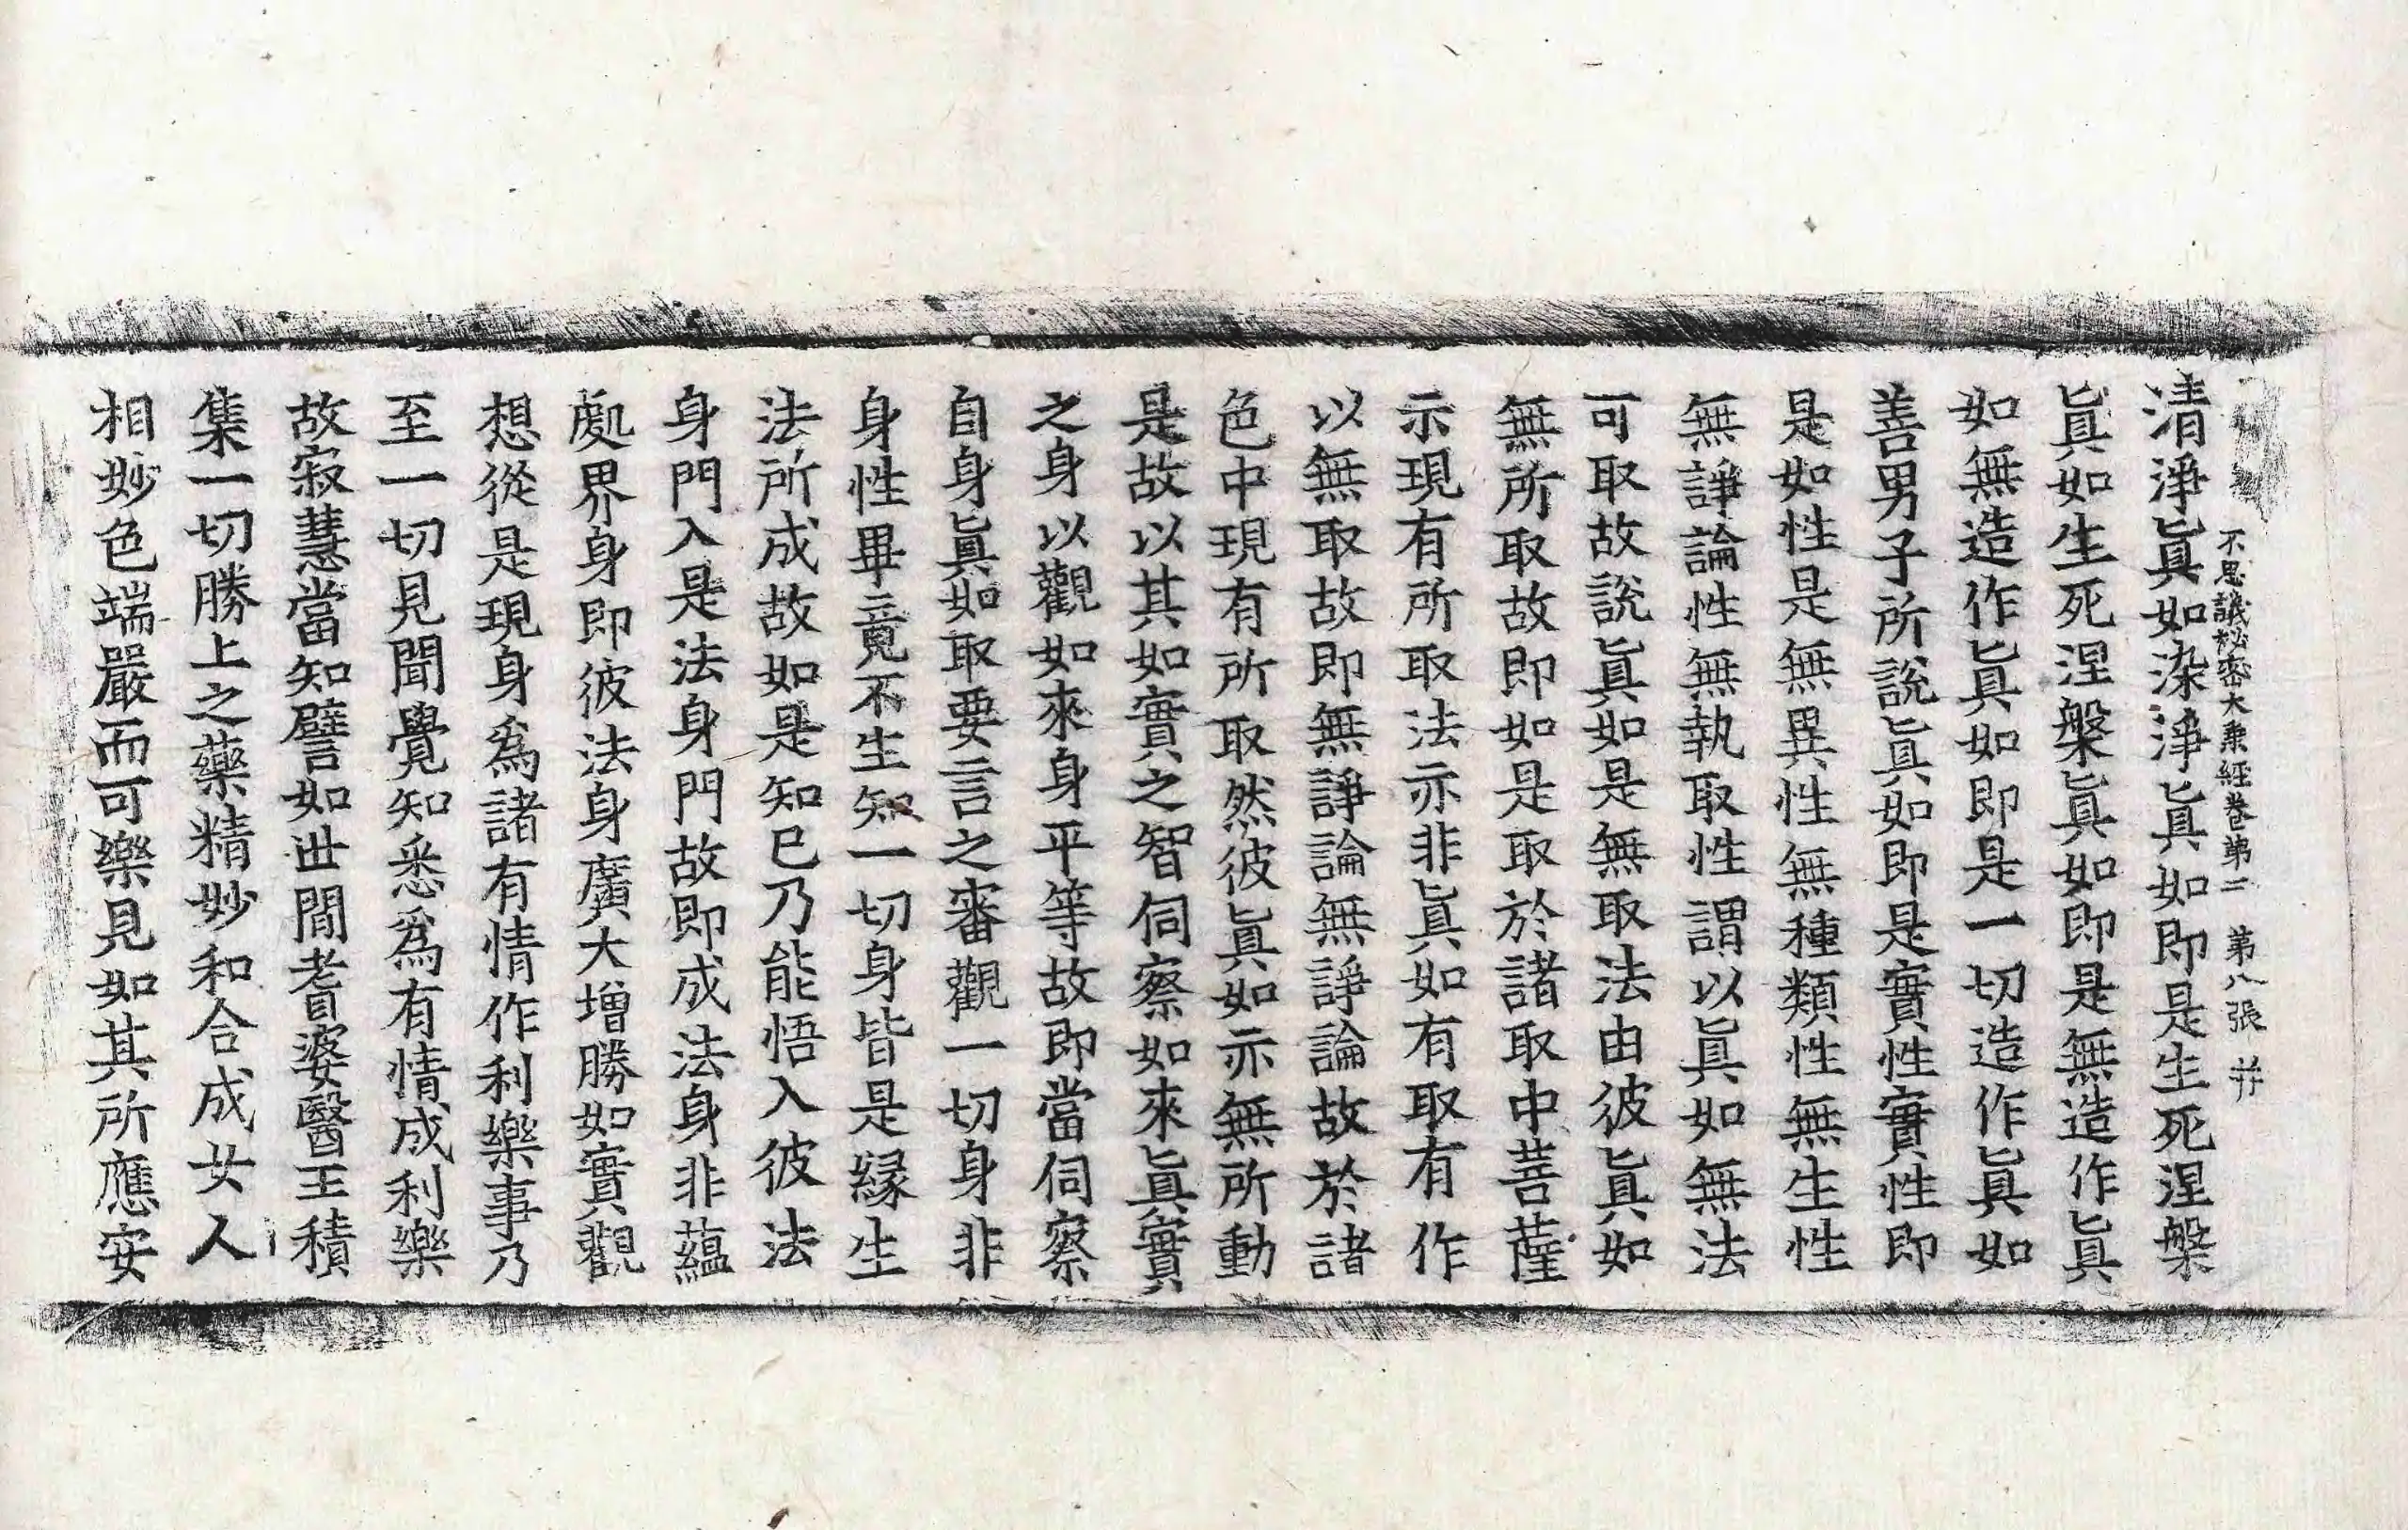 不思議秘密大乘經卷第三 第八張 幷
清淨眞如染淨眞如即是生死涅槃
眞如生死涅槃眞如即是無造作眞
如無造作眞如即是一切造作眞如
善男子所說眞如即是實性實性即
是如性是無異性無種類性無生性
無諍論性無執取性謂以眞如無法
可取故說眞如是無取法由彼眞如
無所取故即如是取於諸取中菩薩
示現有所取法亦非眞如有取有作
以無取故即無諍論無諍論故於諸
色中現有所取然彼眞如亦無所動
是故以其如實之智伺察如來眞實
之身以觀如來身平等故即當伺察
自身眞如取要言之審觀一切身非
身性畢竟不生知一切身皆是緣生
法所成故如是知已乃能悟入彼法
身門入是法身門故即成法身非蘊
處界身即彼法身廣大增勝如實觀
想從是現身爲諸有情作利樂事乃
至一切見聞覺知悉爲有情成利樂
故寂慧當知譬如世間耆婆醫王積
集一切勝上之藥精妙和合成女人
相妙色端嚴而可樂見如其所應安